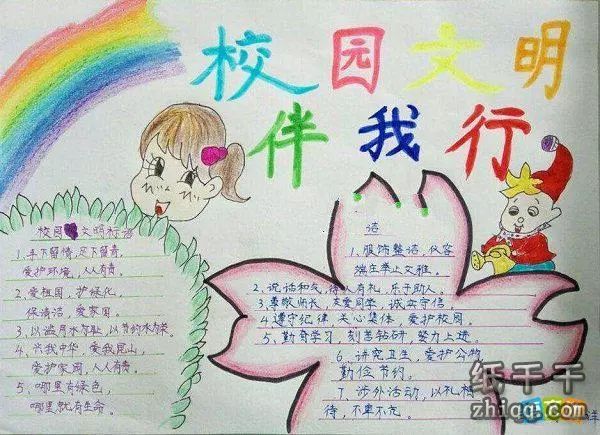 校园文明
伴我行
校园文明标语
1、手下留情,足下留青,
爱护环境,人人有责。
2、爱祖国,护绿化,
保清洁,爱家园。
3、以滥用水为耻,以节约水为荣。
4、兴我中华,爱我昆山,
爱护家园,人人有责。
5、哪里有绿色,
哪里就有生命。
洁
1、服饰整洁,仪容
端庄举止文雅。
2、说话和气,待人有礼,乐于助人。
3、尊敬师长,友爱同学,诚实守信。
4、遵守纪律,关心集体,爱护校园。
5、勤奋学习,刻苦钻研,努力上进。
6、讲究卫生,爱护公物
勤俭节约。
7、涉外活动,以礼相
待,不卑不亢。
纸千千
zhiqq.com